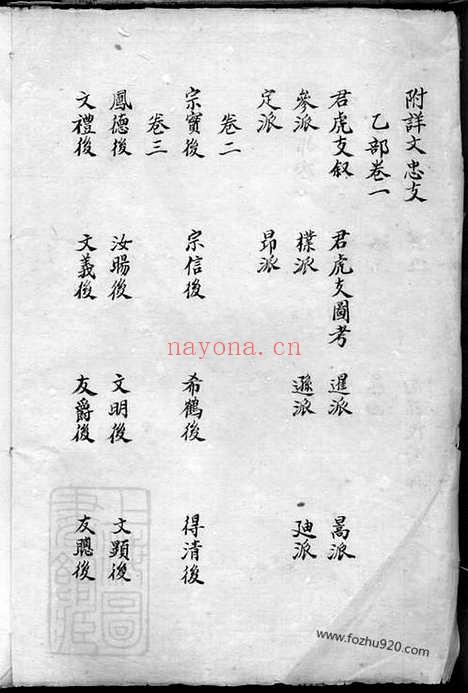 附詳文忠支
乙部卷一
君虎支叙 君虎支圖考 暹派 暠派
參派 檏派 遜派 廸派
定派 昂派
卷二
宗寶後 宗信後 希鶴後 得清後
卷三
鳳德後 汝暘後 文明後 文顯後
文禮後 文義後 友爵後 友聰後
nayona.cn
www.fozhu920.com